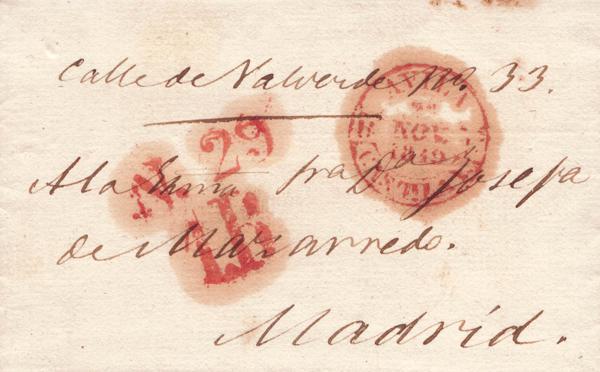 Calle de Valverde no. 33.
N. 29
1R
AVILA
NOV
1849
CASTILLA
A la Exma Sra Da Josefa
de Mazarredo.
Madrid.